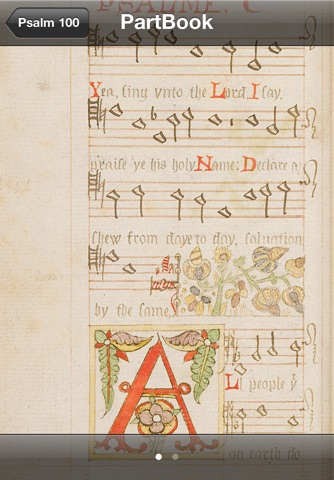 Psalm 100
PartBook
PSALME, C
Yea, sing vnto the Lord I say,
praise ye his holy Name: Declare a
shew from daye to day, saluation
by the same,
A
Ll people ẙ
on earth do